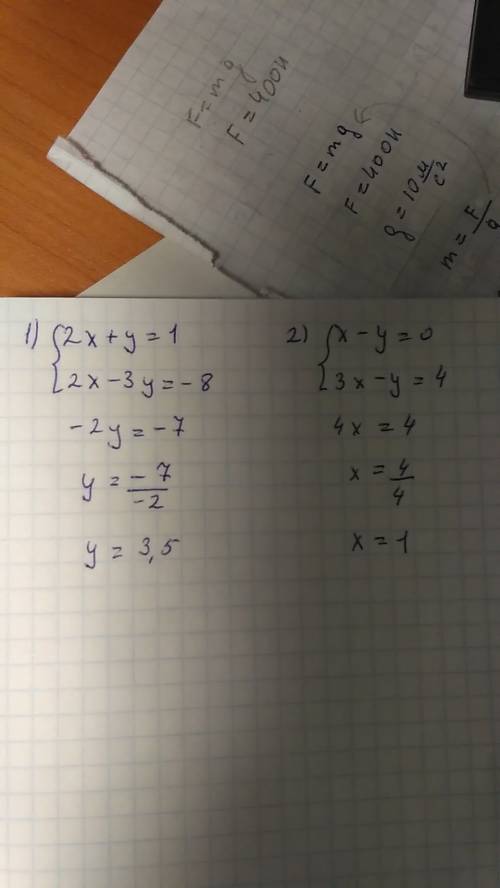 F = mg
F = 400н
F = mg
F = 400н
g = 10 м/с²
m = F/g
1) { 2x + y = 1
2x - 3y = - 8
- 2y = - 7
y = - 7/-2
y = 3,5
2) { x - y = 0
3x - y = 4
4x = 4
x = 4/4
x = 1